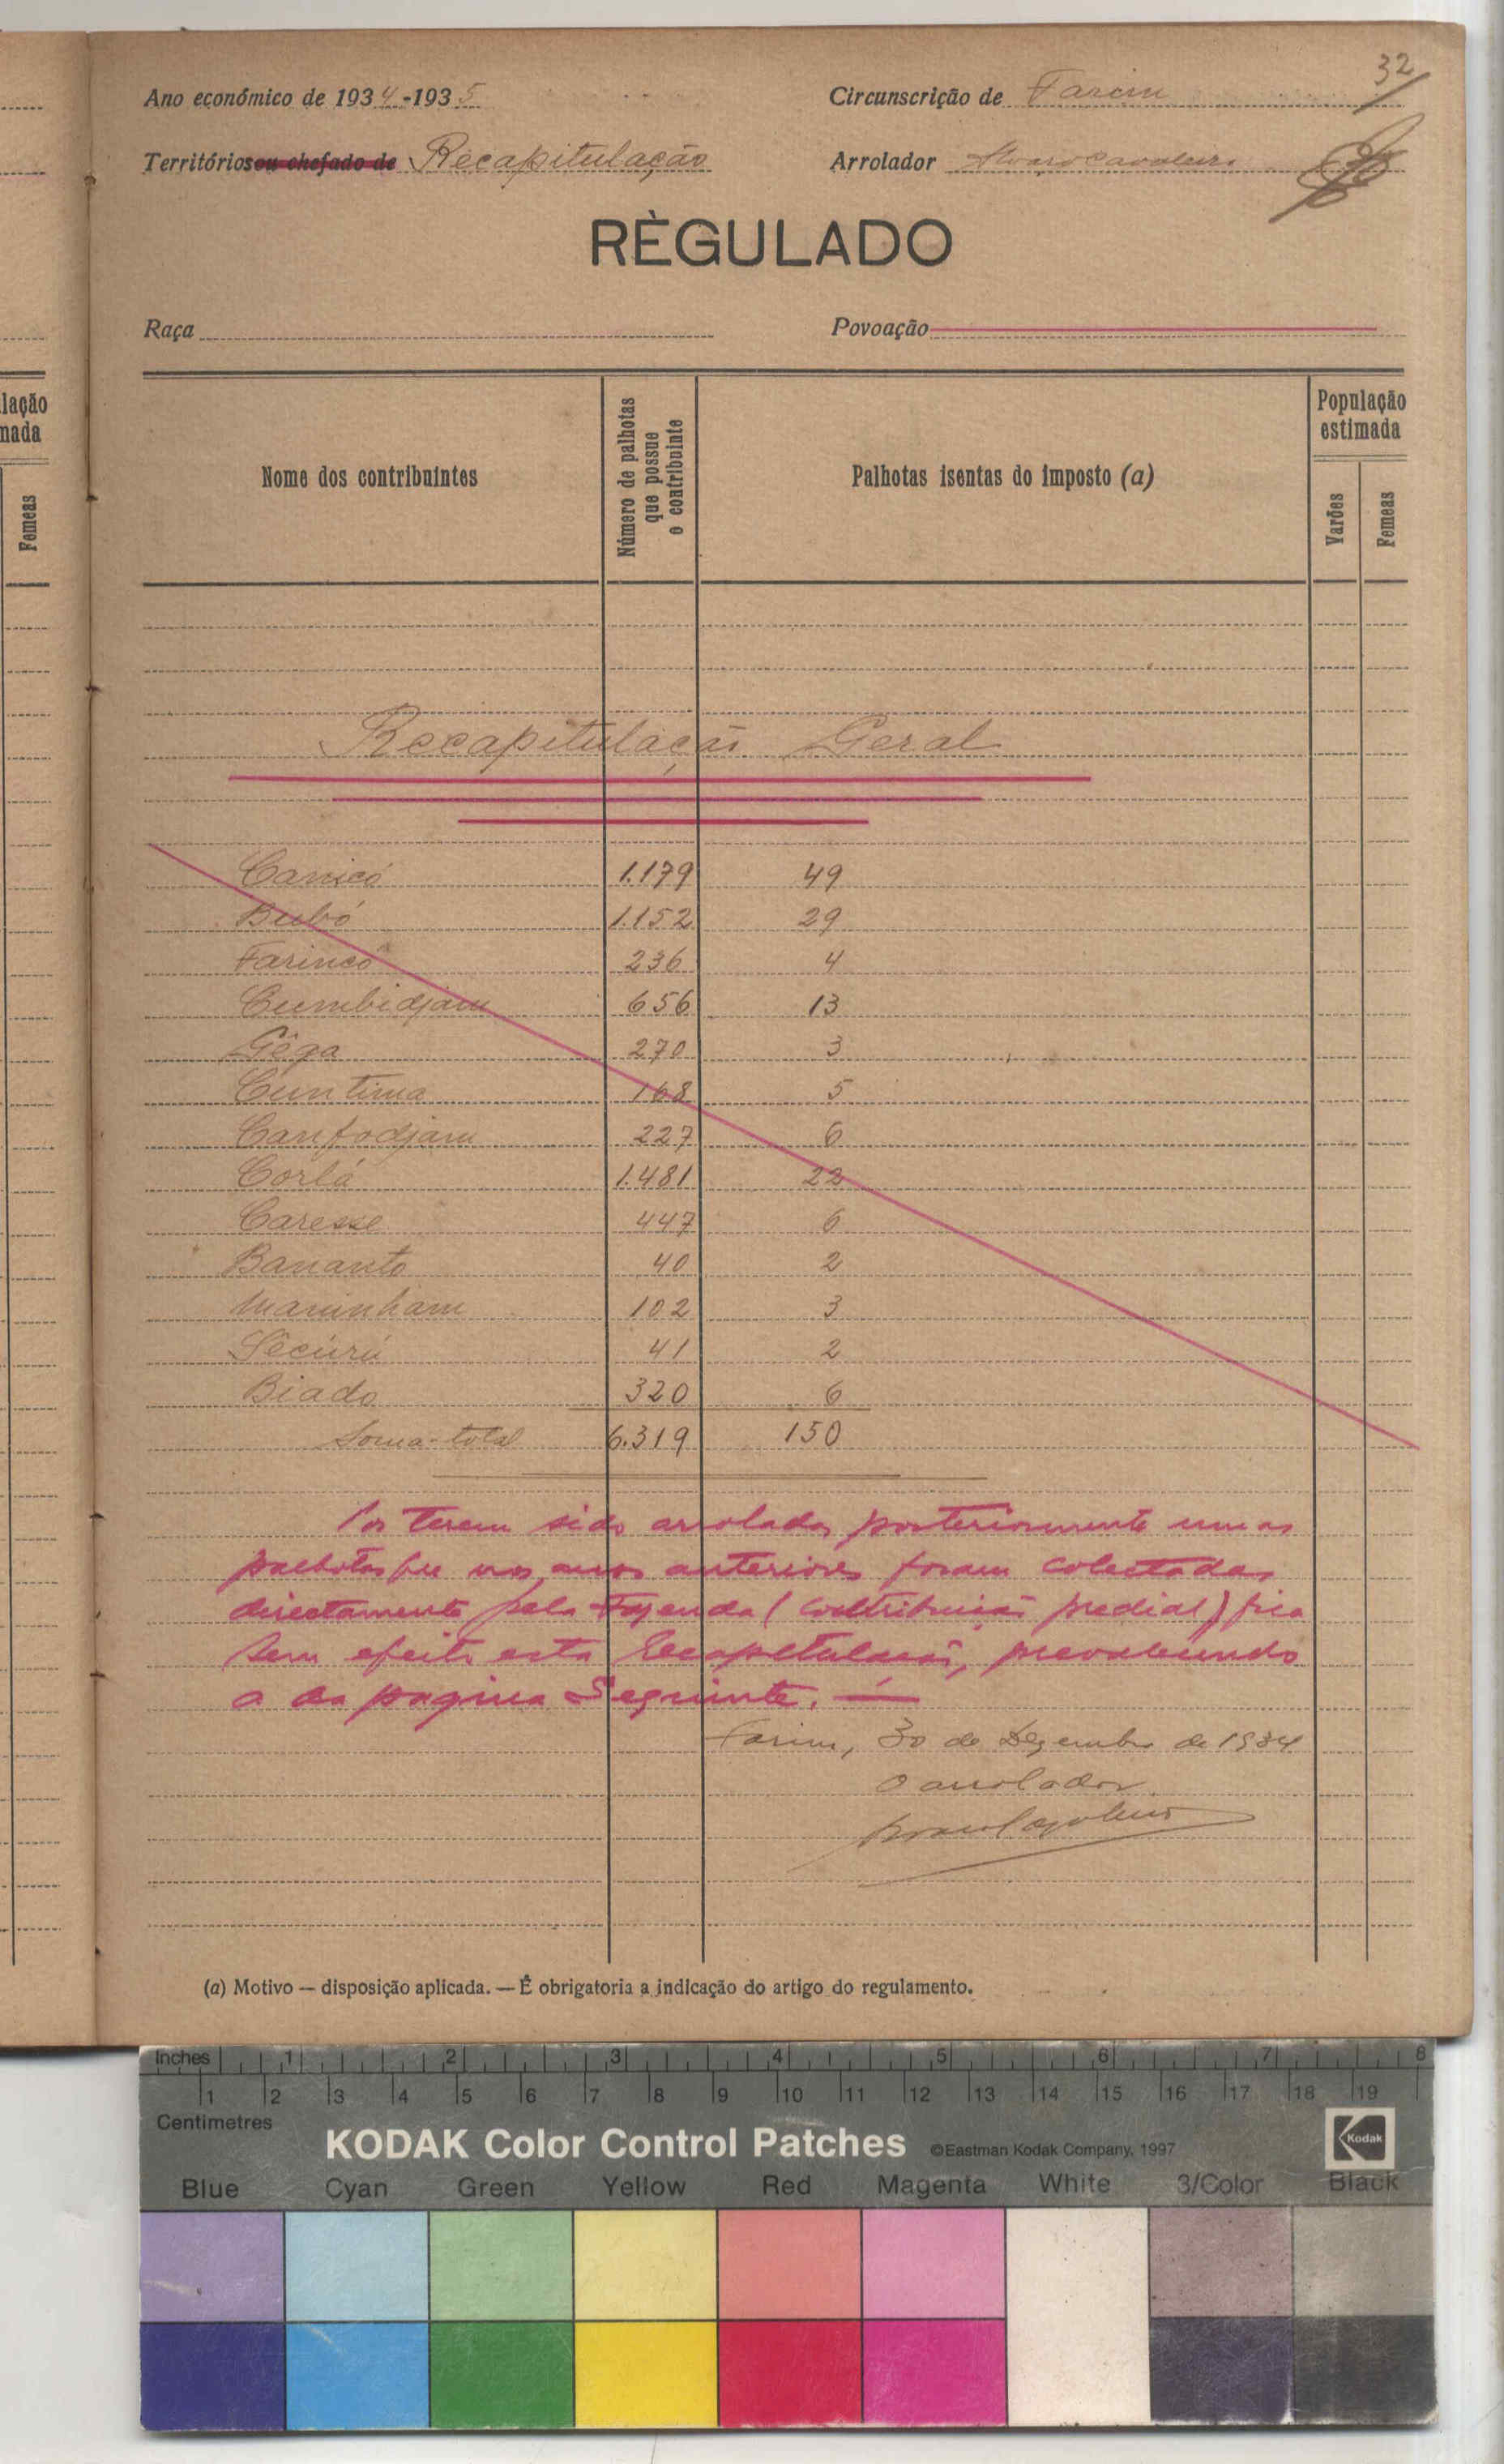 32
Ano económico de 1934-1935
Circunscrição de Farim
Territórios ou chefado de Recapitulação
Arrolador Alvaro Cavaleiro
RÈGULADO
Raça
Povoação
lação
mada
Femeas
Nome dos contribuintes
Número de palhotas que possue o contribuinte
Palhotas isentas do imposto (a)
População estimada
Varões
Femeas
Recapitulação Geral
Canicó 1.179 49
Bubó 1.152 29
Farincó 236 4
Cumbidjam 656 13
Gêga 270 3
Cuntima 168 5
Canfodjam 227 6
Corlá 1.481 22
Caresse 447 6
Bananto 40 2
Maninham 102 3
Sêcúrú 41 2
Biado 320 6
Soma-total 6.319 150
Por terem sido arroladas posteriormente umas
palhotas que nos anos anteriores foram colectadas
directamente pela Fazenda (contribuição predial) fica
sem efeito esta recapitulação, prevalecendo
a da pagina seguinte. —
Farim, 30 de Dezembro de 1934
O arrolador
(a) Motivo — disposição aplicada. — É obrigatoria a indicação do artigo do regulamento.
Inches 1 2 3 4 5 6 7 8
1 2 3 4 5 6 7 8 9 10 11 12 13 14 15 16 17 18 19
Centimetres
KODAK Color Control Patches ©Eastman Kodak Company, 1997 Kodak
Blue Cyan Green Yellow Red Magenta White 3/Color Black